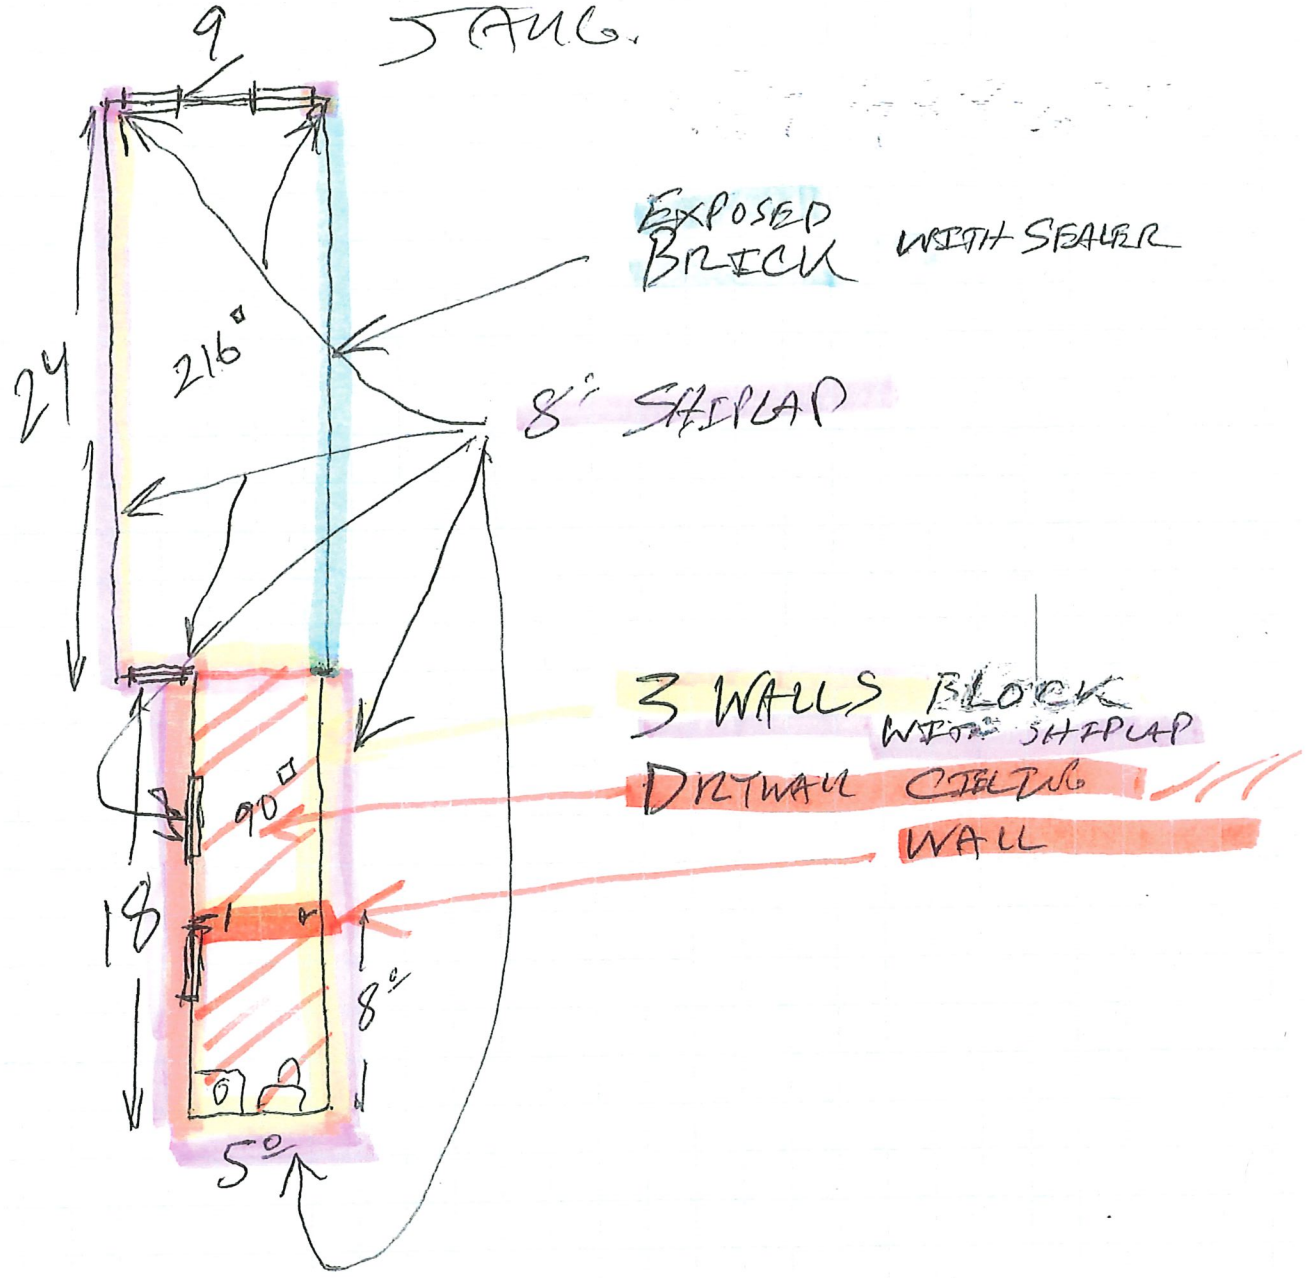 5 AUG.
9
EXPOSED
BRICK WITH SEALER
216□
24
8" SHIPLAP
3 WALLS BLOCK
WITH SHIPLAP
90□
DRYWALL CIELING
WALL
18
8°
5°